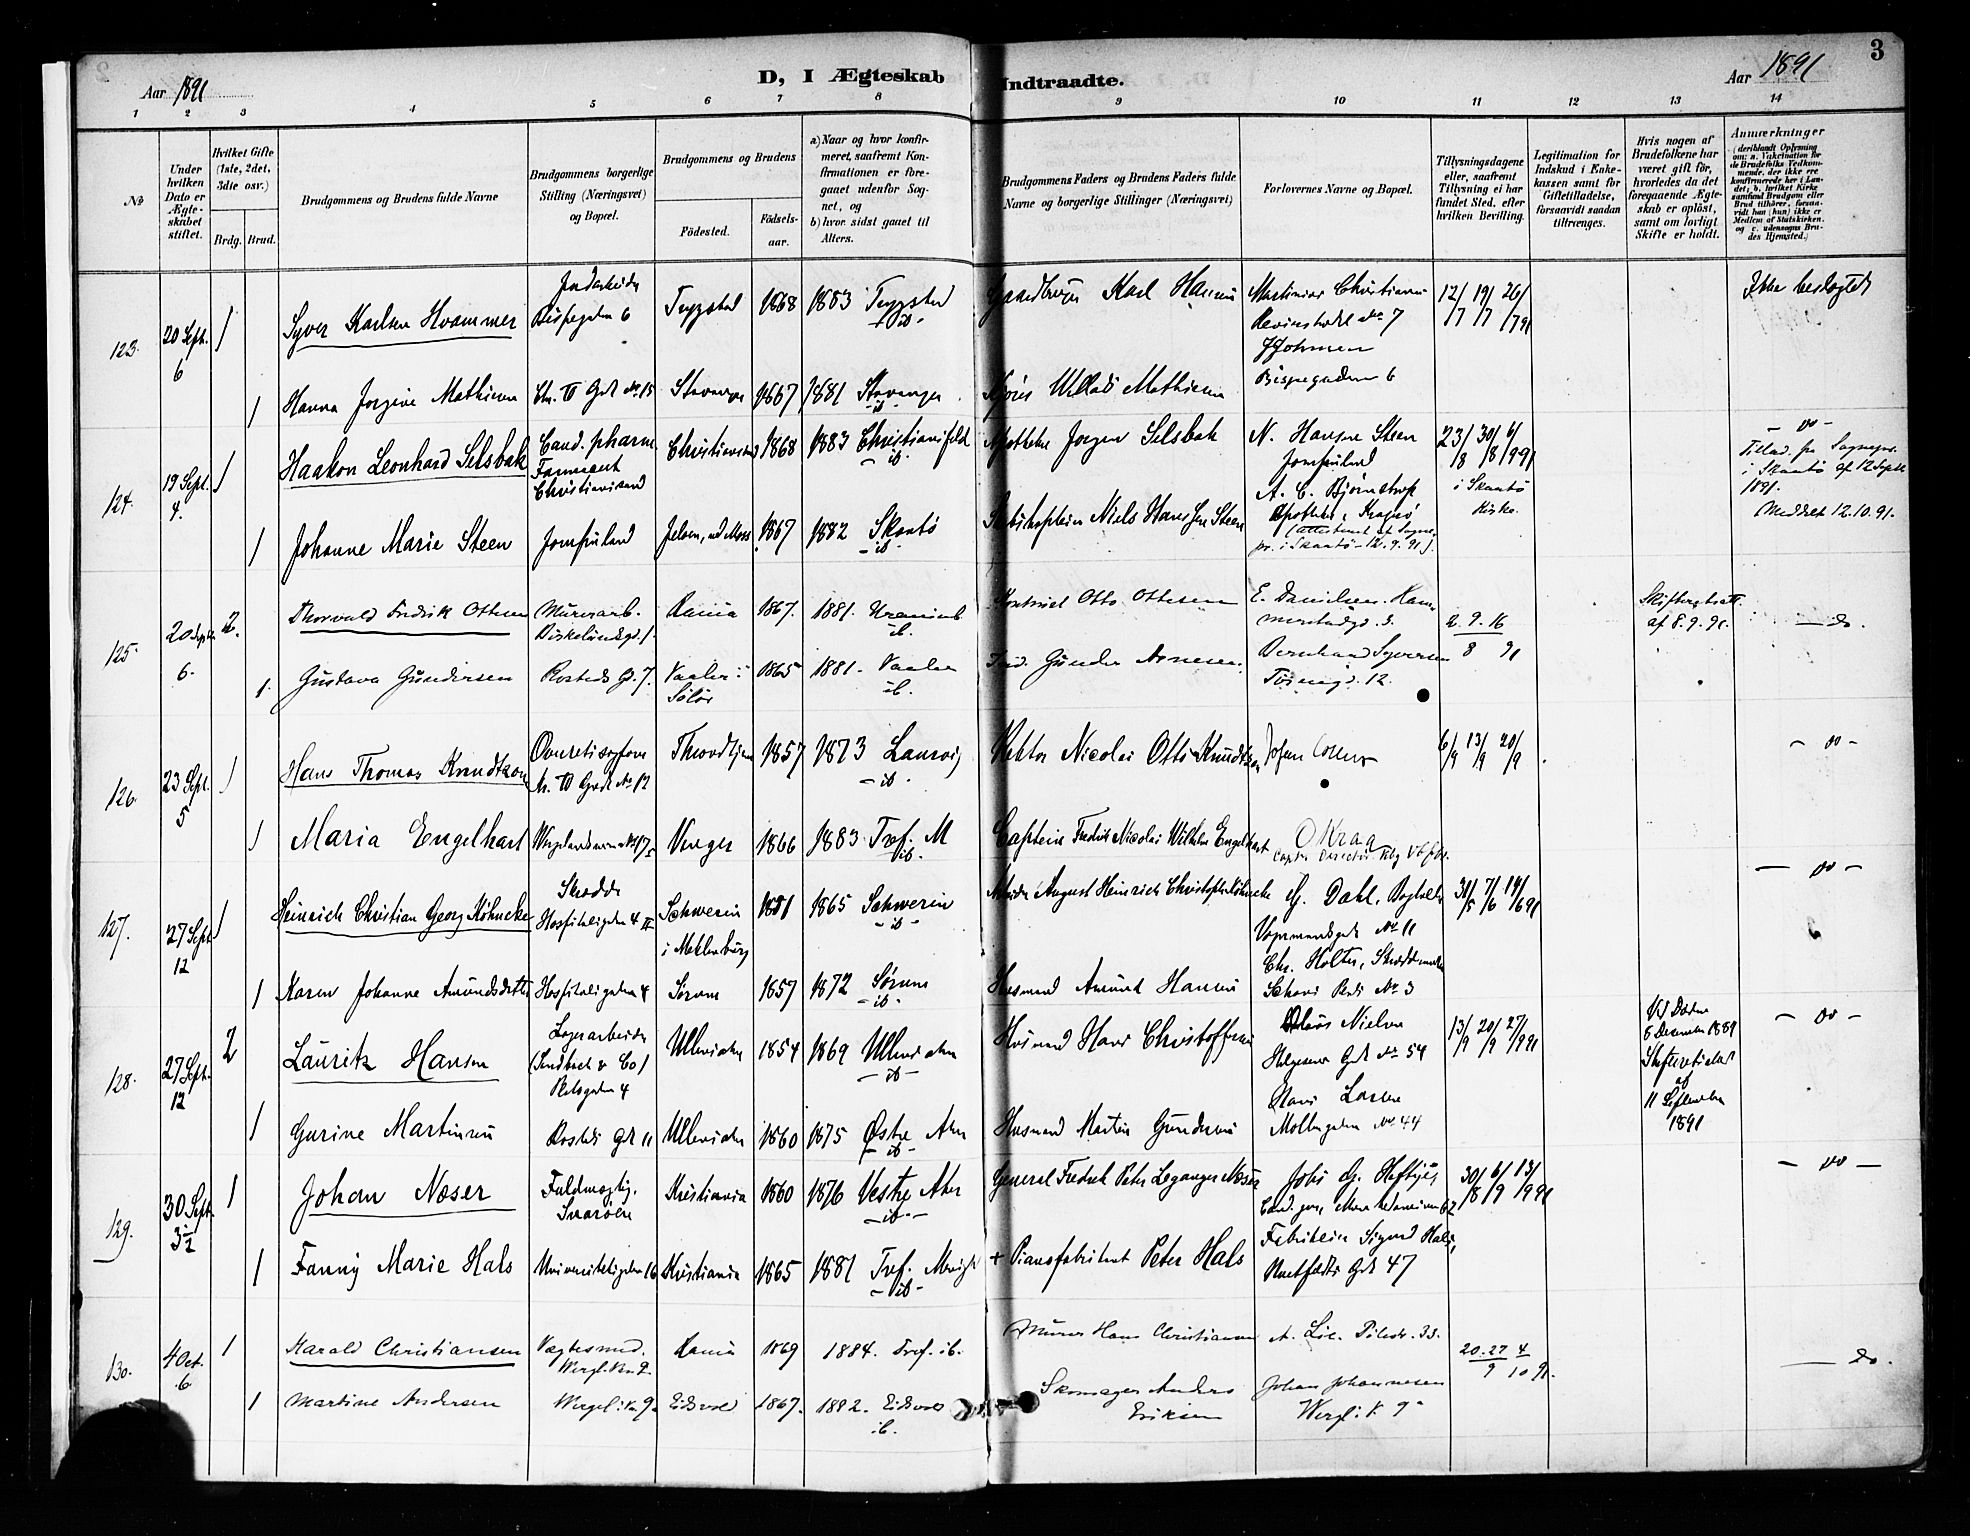 3
Aar 1891
D, I Ægteskab Indtraadte.
Aar 1891
1 2 3 4 5 6 7 8 9 10 11 12 13 14
No
Under hvilken Dato er Ægteskabet stiftet.
Hvilket Gifte (1ste, 2det, 3die osv.)
Brdg. Brud.
Brudgommens og Brudens fulde Navne
Brudgommens borgerlige Stilling (Næringsvei) og Bopæl.
Brudgommens og Brudens
Fødested.
Fødselsaar.
a) Naar og hvor konfirmeret, saafremt Konfirmationen er foregaaet udenfor Sognet, og
b) hvor sidst gaaet til Alters.
Brudgommens Faders og Brudens Faders fulde Navne og borgerlige Stillinger (Næringsvei)
Forlovernes Navne og Bopæl.
Tillysningsdagene eller, saafremt Tillysning ei har fundet Sted, efter hvilken Bevilling.
Legitimation for Indskud i Enkekassen samt for Giftetilladelse, forsaavidt saadan tiltrænges.
Hvis nogen af Brudefolkene har været gift før, hvorledes da det foregaaende Ægteskab er opløst, samt om lovligt Skifte er holdt.
Anmærkninger
(deriblandt Oplysning om: a. Vakcination for de Brudefolks Vedkommende, der ikke ere konfirmerede her i Landet; b. hvilket Kirkesamfund Brudgom eller Brud tilhører, forsaavidt han (hun) ikke er Medlem af Statskirken, og c. udensogns Brudes Hjemsted.)
123. 20 Sept. 6 1 Syver Karlsen Hvammer
Bispegaden 6
Trygstad 1868 1883 Trygstad
ib
Gaardbruger Karl Hansen
Martinius Christiansen
No 7
Johnsen
Bispegaden 6
12/7 19/7 26/7 91
Ikke beslægtet
1 Hanna Jorgine Mathisen Stavanger 1867 1881 Stavanger
ib
Mathisen
124. 19 Sept. 4. 1 Haakon Leonhard Selsbak
Cand. pharm.
Christianssand
Christianssand 1868 1883 Christiansfeld
ib
Apotheker Jørgen Selsbak
N. Hansen Steen
Jomfruland
A. C. Bjørnstrup
Apotheker, Kragerø
pr. i Skaatø 12.9.91).
23/8 30/8 6/9 91
i Skaatø
Kirke.
do
Tillad. fra Sognepr.
i Skaatø af 12 Septb
1891.
Meddelt 12.10.91.
1 Johanne Marie Steen Jomfruland Jeløen, ved Moss 1867 1882 Skaatø
ib
Niels Hanssen Steen
125. 20 Septb. 6. 2. Thorvald Fredrik Ottesen
Murerarb.
Birkelundsgd. 1.
Kania 1867. 1881. Uranienb
ib.
Otto Ottesen
E. Danielsen. Hammerstadgd. 3.
2. 9. 16 / 8 91
Skifteattest
af 8. 9. 91.
do.
1. Gustava Gundersen Rosteds G. 7. Vaaler i Solør 1865 1881. Vaaler
ib.
Gunder Arnesen.
Bernhard Syversen
12.
126. 23 Sept. 5 1 Hans Thomas Knudtzon
Overretssagfører
Throndhjem 1857 1873 Laurvig
ib.
Rektor Nicolai Otto Knudtzon
Johan
6/9 13/9 20/9
do
1 Maria Engelhart Wergelandsveien No 17 Verger 1866 1883 Tref. M
ib.
Captein Fredrik Nicolai Wilhelm Engelhart
O Krag
127. 27 Sept 12 1 Heinrich Christian Georg Köhncke
Skrædder
Hospitalsgaden 4 II
Schwerin
i Meklenburg
1851 1865 Schwerin
ib
August Heinrich Christoph Köhncke
G. Dahl, Boghold.
No 11
Chr. Holter, Skræddermester
No 3
31/5 7/6 14/6 91
do
1 Karen Johanne Amundsdatter Hospitalsgaden 4 Sørum 1857 1872 Sørum
ib
Husmand Amund Hansen
128. 27 Sept. 12 2 Lauritz Hansen
Lagerarbeider
4
Ullensaker 1854 1869 Ullensaker
ib
Husmand Hans Christoffersen
Nielsen
No 54
Hans Larsen
Møllergaden No 44
13/9 20/9 27/9 91
Ved Døden
6 December 1889
Skifteattest
af
11 September
1891
do
1 Gurine Martinsen Rosteds Gd 11 Ullensaker 1860 1875 Østre Aker
ib
Husmand Martin Gundersen
129. 30 Sept. 3½ 1 Johan Næser
Fuldmægtig.
Snarøen
Kristiania 1860 1876 Vestre Aker
ib
General Fredrik Peter Leganger Næser
Johs G. Heftye
Cand. jur.
Fabrikeier Sigurd Hals,
Gd 47
30/8 6/9 13/9 91
do
1 Fanny Marie Hals Universitetsgaden 16 Kristiania 1865 1881 Tref. Menigh
ib
+ Pianofabrikant Peter Hals
130. 4 Oct. 6 1 Harald Christiansen
Vægtersmed.
Wergl. Vn 9.
Kania 1869 1884. Tref. ib.
Murer Hans Christiansen
A. Lie. Pilestr. 33.
20. 27 / 9 4 / 10 91.
do.
1 Martine Andersen Wergel. Vn 9. Eidsvold 1867. 1882. Eidsvold
ib.
Skomager Anders
Eriksen
Johan Johannesen
Wergl. V. 9